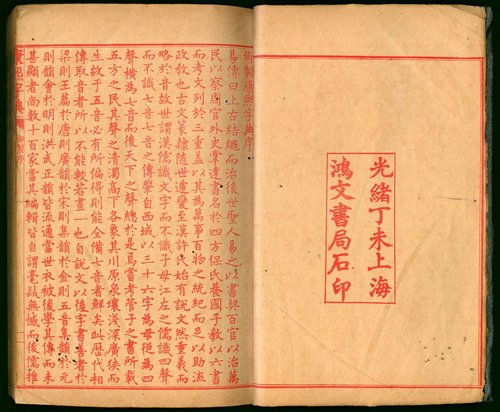 光緒丁未上海
鴻文書局石印
御製康熙字典序
易傳曰上古結繩而治後世聖人易之以書契百官以治萬
民以察周官外史掌達書名於四方保氏養國子教以六書
而考文列於三重蓋以其為萬事百物之統紀而足以助流
政教也古文篆隸隨世遞變至漢許氏始有說文然重義而
略於音故世謂漢儒識文字而不識子母江左之儒識四聲
而不識七音七音之傳肇自西域以三十六字為母從為四
聲橫為七音而後天下之聲總於是焉嘗考管子之書所載
五方之民其聲之清濁高下各象其川原泉壤淺深廣狹而
生故于五音必有所偏得則能全備七音者鮮矣此歷代相
傳取音者所以不能較若畫一也自說文以後字書善者於
梁則玉篇於唐則廣韻於宋則集韻於金則五音集韻於元
則韻會於明則洪武正韻皆流通當世衣被後學其傳而未
甚顯者尚數十百家當其編輯皆自謂毫髮無憾而後儒推
康熙字典